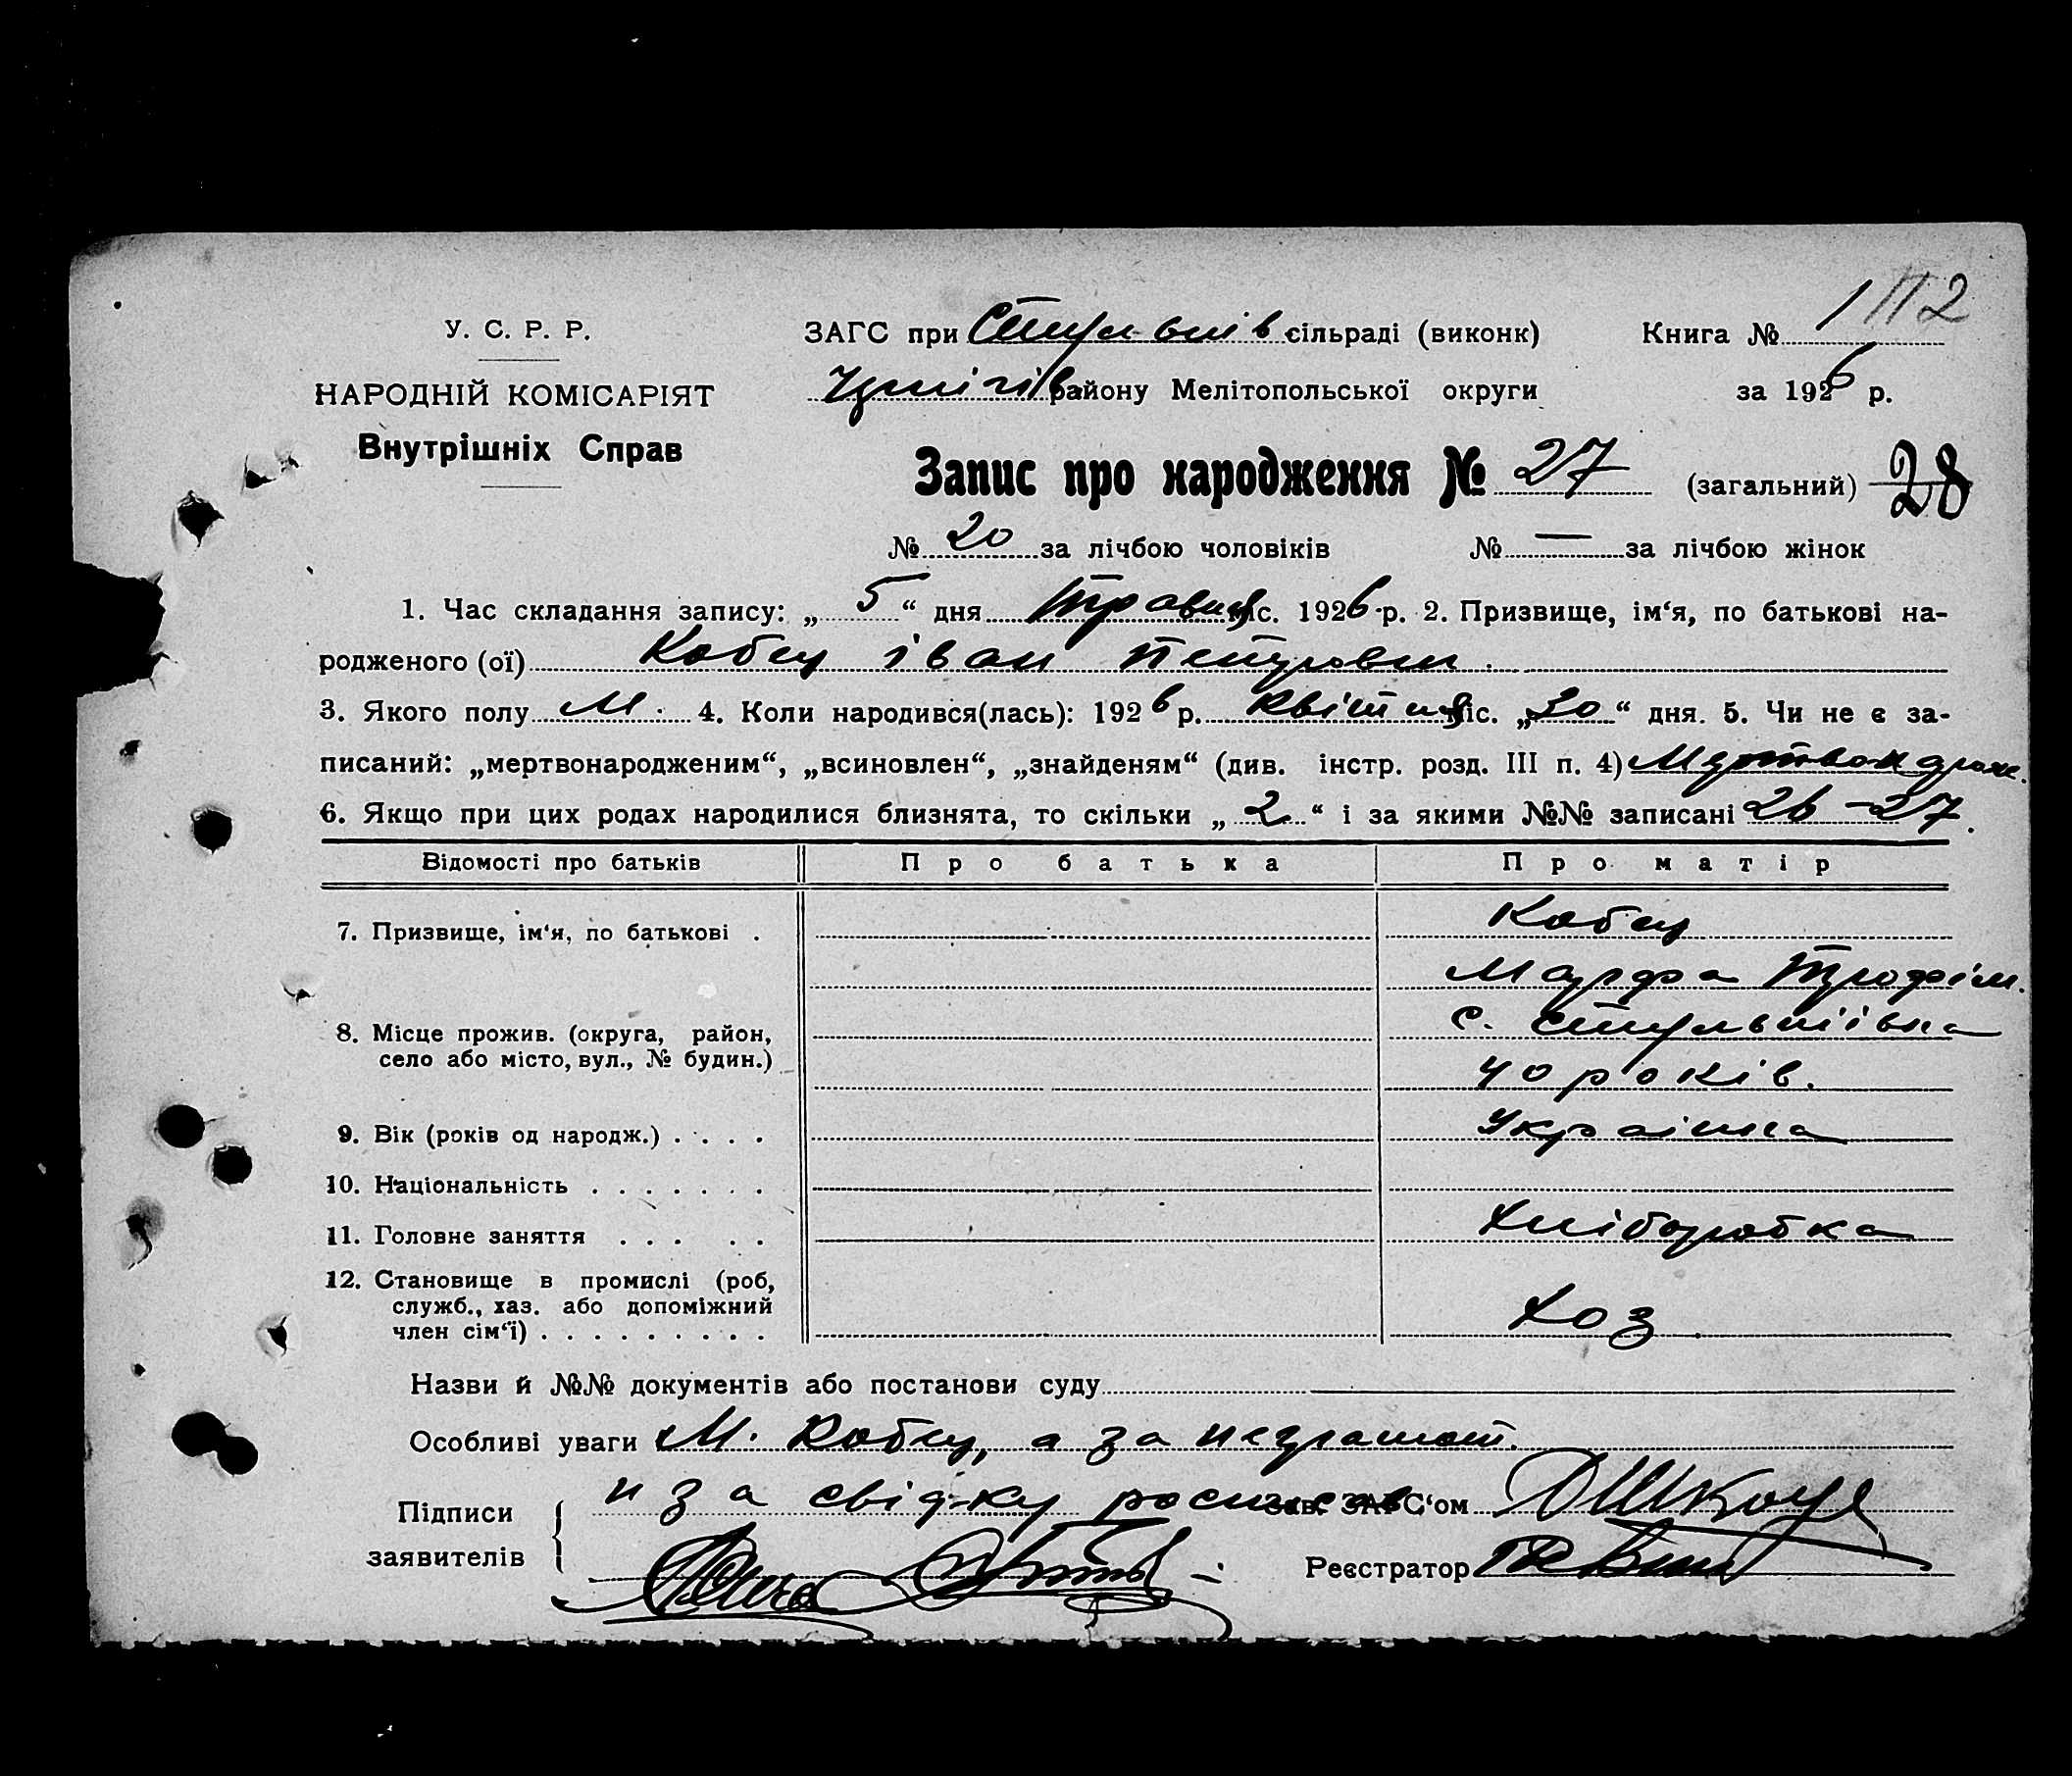 У. С. Р. Р.
НАРОДНІЙ КОМІСАРІЯТ
Внутрішніх Справ
ЗАГС при сільраді (виконк)
району Мелітопольської округи
Книга № 1 112
за 1926 р.
Запис про народження № 27 (загальний) 28
№ 20 за лічбою чоловіків № — за лічбою жінок
1. Час складання запису: „ 5 “ дня Травня міс. 1926 р. 2. Призвище, ім‘я, по батькові на-
родженого (ої) Кобец іван Петрович.
3. Якого полу М. 4. Коли народився(лась): 1926 р. Квітня міс. „30“ дня. 5. Чи не є за-
писаний: „мертвонародженим“, „всиновлен“, „знайденям“ (див. інстр. розд. III п. 4)
6. Якщо при цих родах народилися близнята, то скільки „ 2 “ і за якими №№ записані 26 – 27.
Відомості про батьків Про батька Про матір
7. Призвище, ім‘я, по батькові . Кобец
Марфа Трофім.
8. Місце прожив. (округа, район,
село або місто, вул., № будин.)
с. 
40 років.
9. Вік (років од народж.) . . . . Українка
10. Національність . . . . . . .
11. Головне заняття . . . . . Хліборобка
12. Становище в промислі (роб,
служб., хаз. або допоміжний
член сім‘ї) . . . . . . . . . Хоз.
Назви й №№ документів або постанови суду
Особливі уваги М. Кобец, а за неграмот.
и за свідку росписався
Підписи
заявителів
Зав. ЗАГС‘ом
Реєстратор